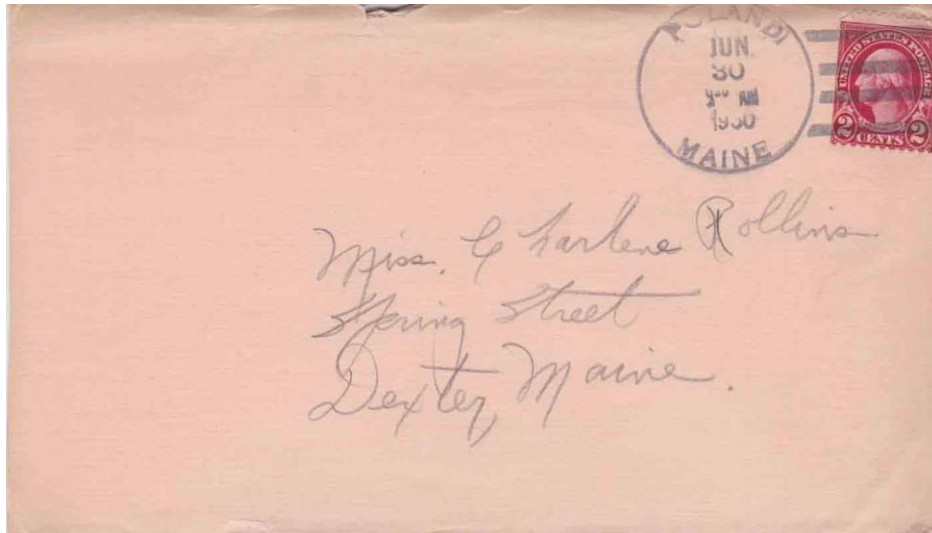 POLAND
JUN
30
AM
1930
MAINE
UNITED STATES POSTAGE
2 CENTS 2
Miss. Charlene Rollins
Spring Street
Dexter, Maine.